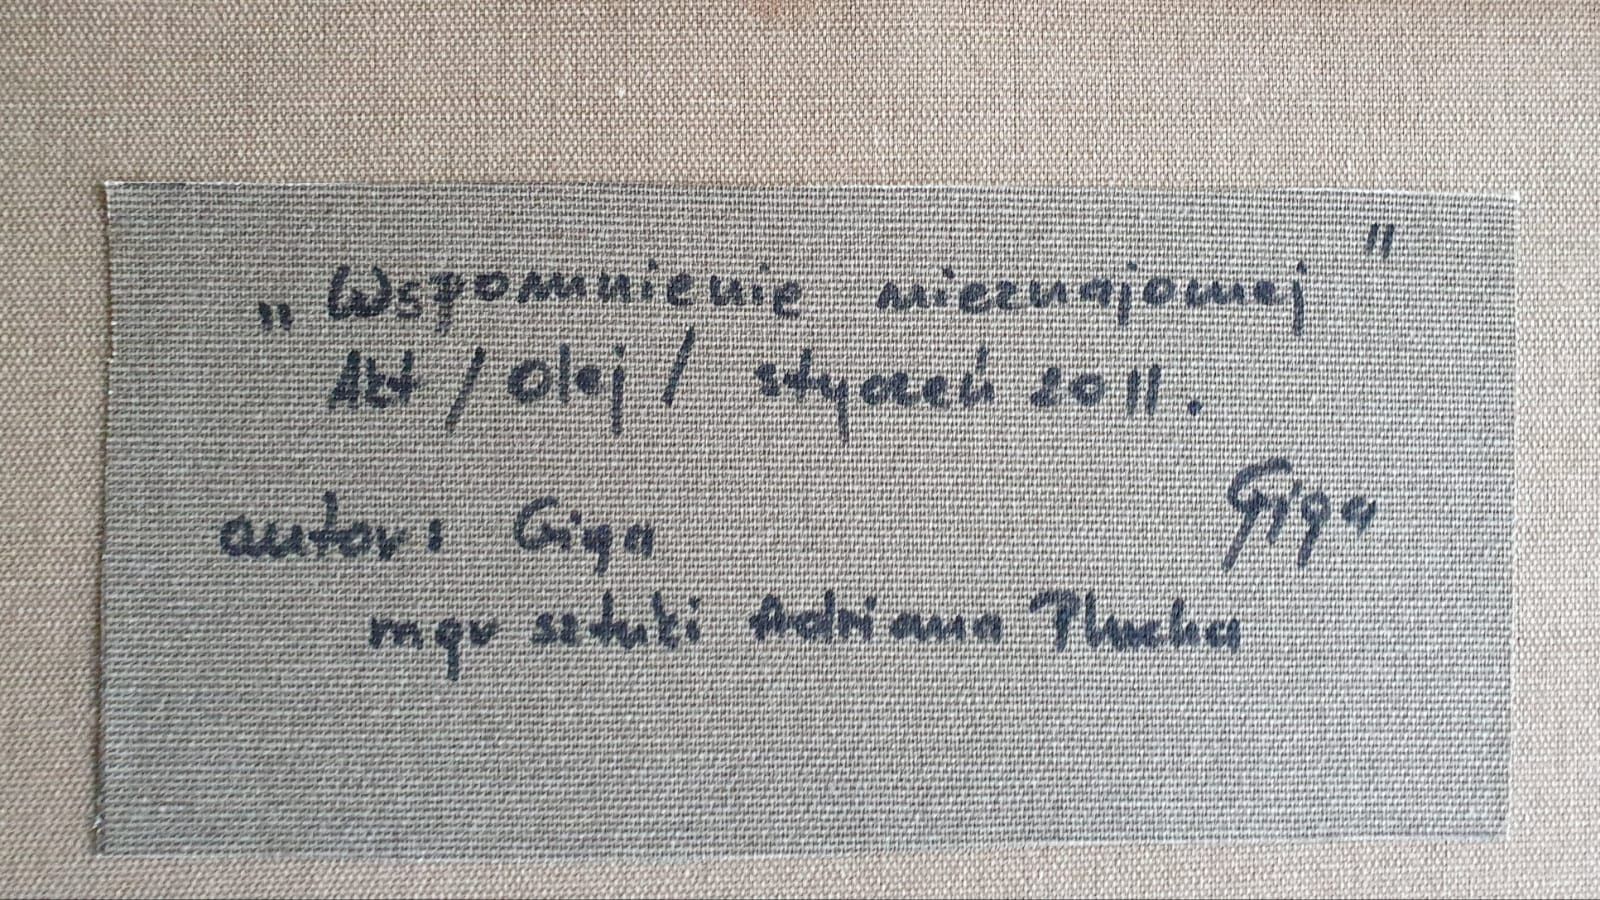 „Wspomnienie nieznajomej"
Akt / Olej / styczeń 2011.
autor: Giga
Giga
mgr sztuki Adriana Plucha